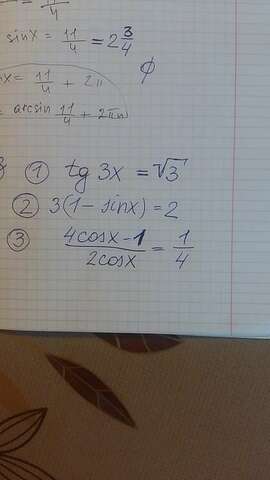 11/4
sinx = 11/4 = 2 3/4
x = 11/4 + 2π
= arcsin 11/4 + 2πn
∅
① tg 3x = √3
② 3(1 - sinx) = 2
③ (4cosx - 1)/(2cosx) = 1/4